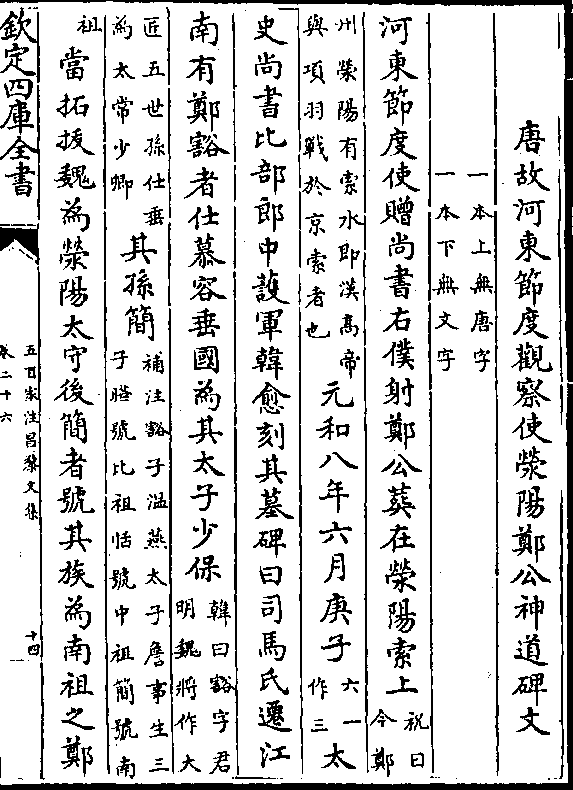 唐故河東節度觀察使滎陽鄭公神道碑文
一本上無唐字
一本下無文字
河東節度使贈尚書右僕射鄭公葬在滎陽索上祝曰今鄭
州滎陽有索水即漢高帝與項羽戰於京索者也元和八年六月庚子六一作三太
史尚書比部郎中護軍韓愈刻其墓碑曰司馬氏遷江
南有鄭豁者仕慕容垂國為其太子少保韓曰豁字君明魏將作大
匠五世孫仕垂為太常少卿其孫簡補注豁子溫燕太子詹事生三子號比祖恬號中祖簡號南
祖當拓拔魏為滎陽太守後簡者號其族為南祖之鄭
欽定四庫全書
五百家注昌黎文集
卷二十六
十四